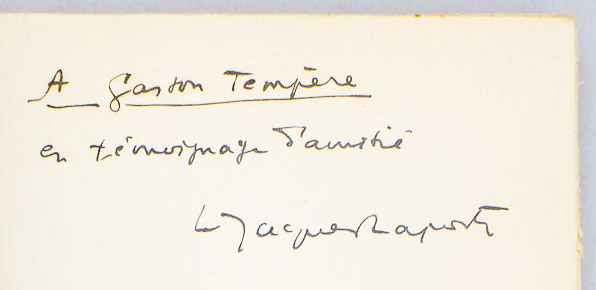 A Gaston Tempère
en témoignage d'amitié
Jacques Laporte